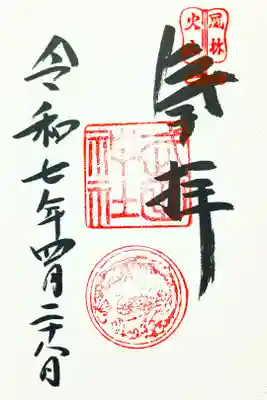 風林
火
奉拝
武田
神社
令和七年四月二十八日